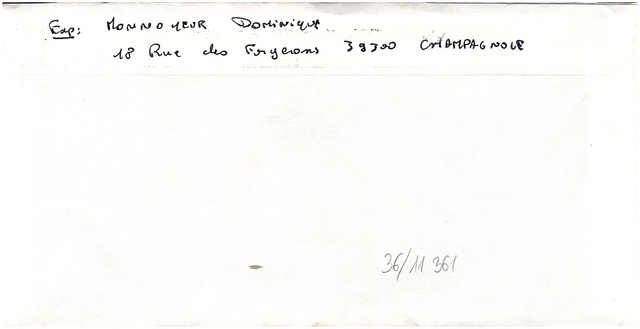 Exp: MONNOYEUR Dominique
18 Rue des Forgerons 39300 CHAMPAGNOLE
36/11 361